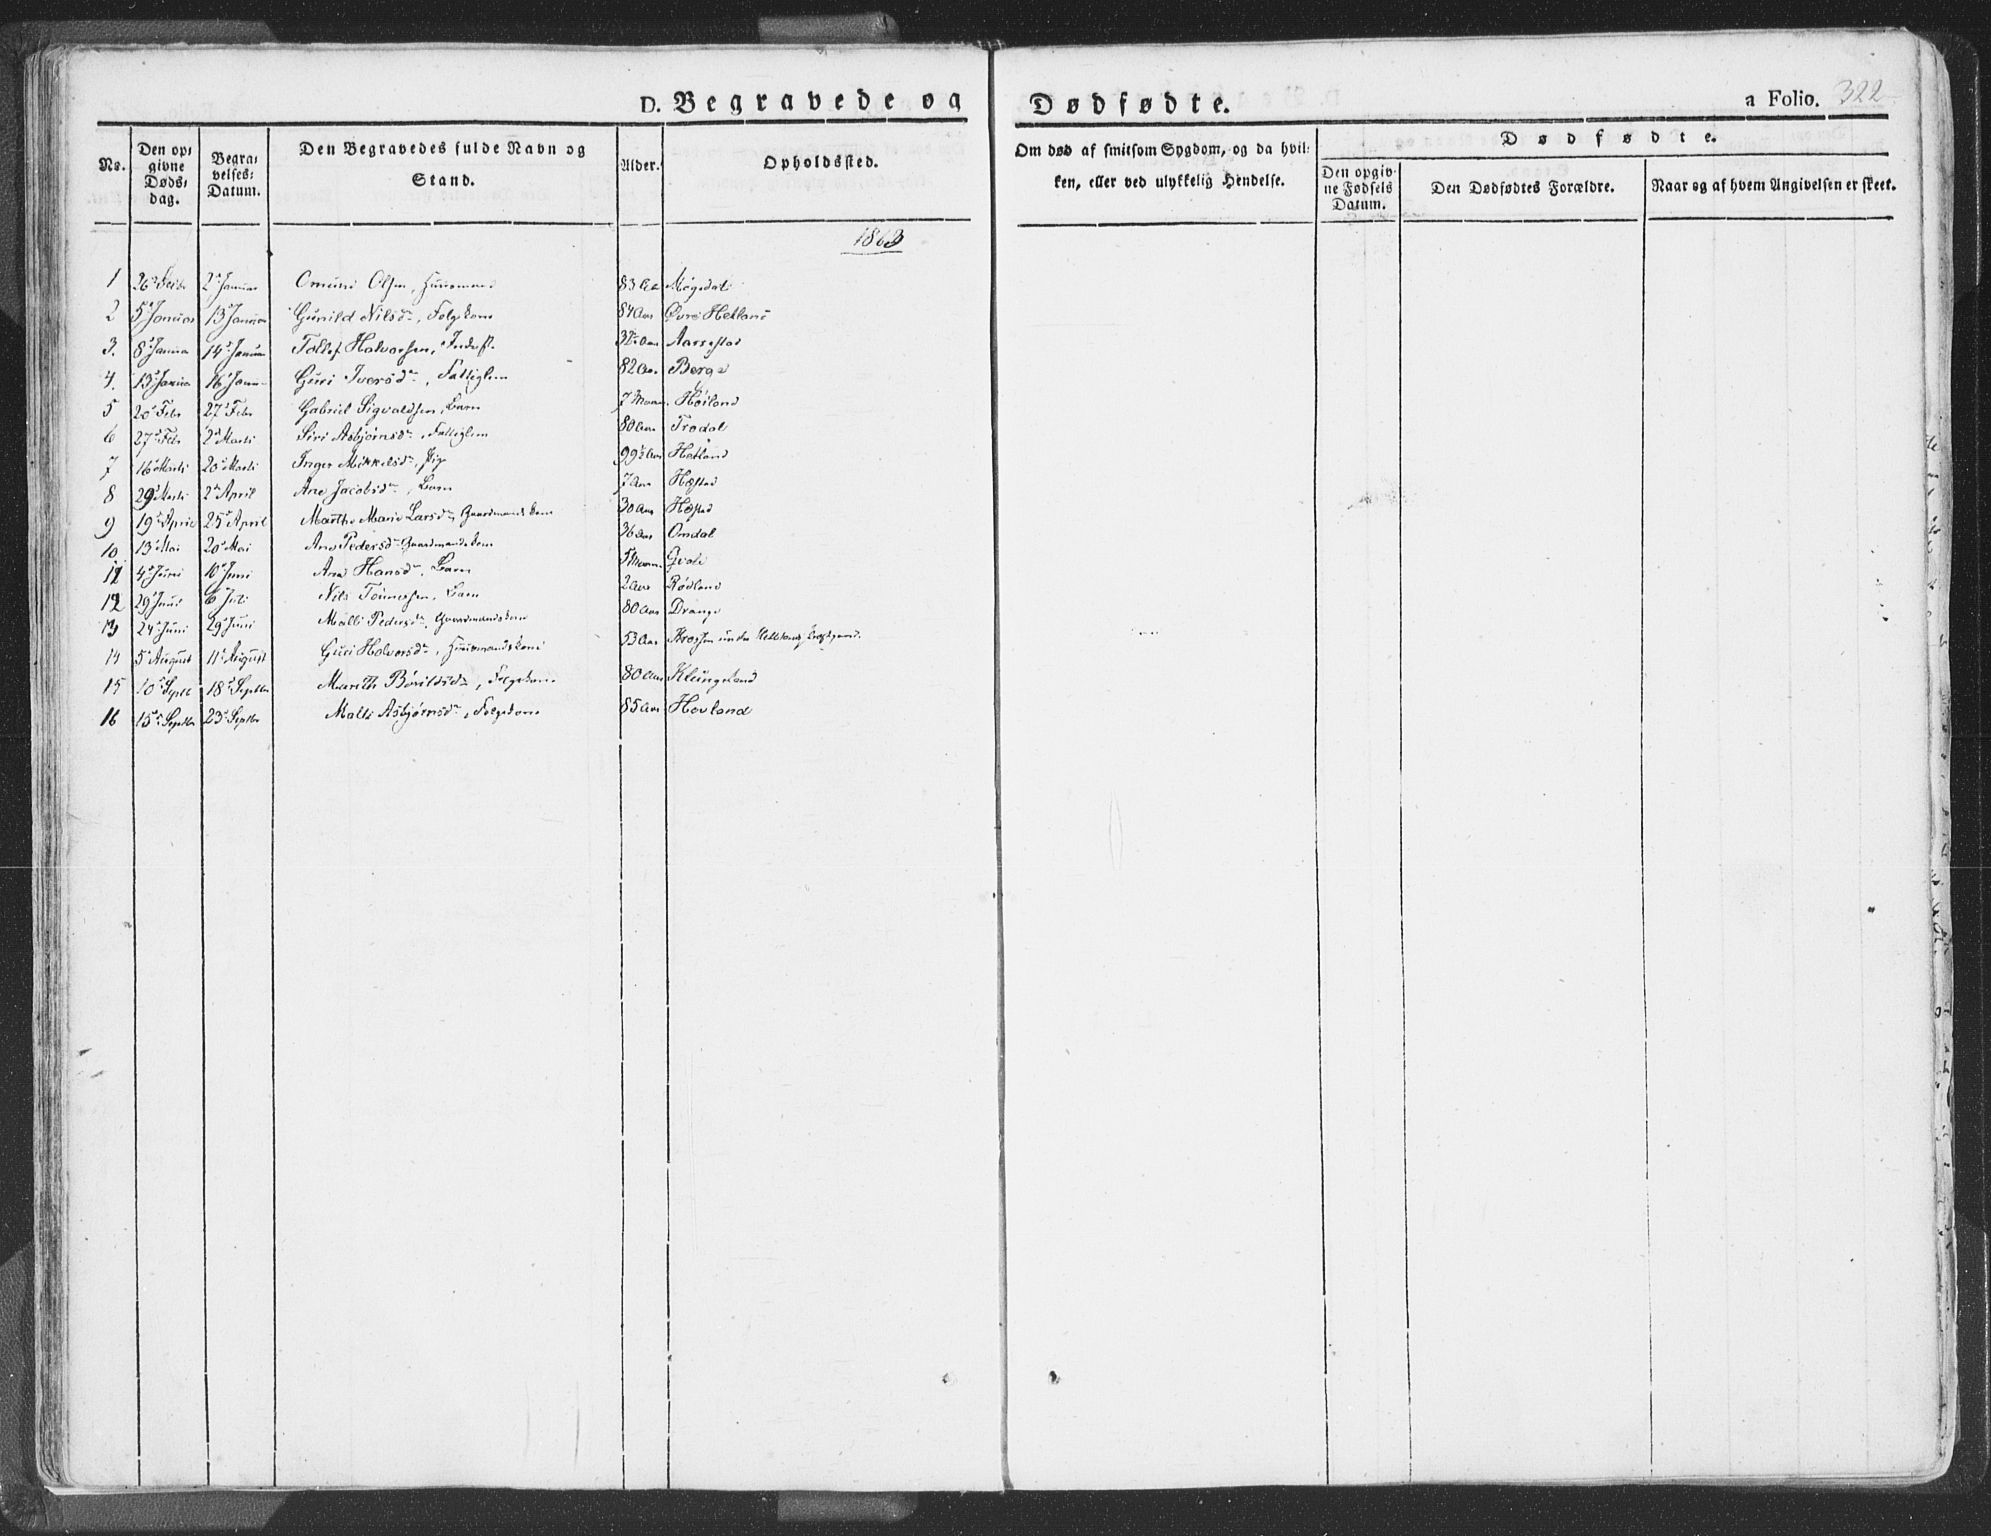 D. Begravede og Dødfødte. a Folio. 322
No. Den opgivne Dødsdag. Begravelses: Datum. Den Begravedes fulde Navn og Stand. Alder. Opholdssted. Om død af smitsom Sygdom, og da hvilken, eller ved ulykkelig Hendelse. Dødfødte. Den opgivne Fødsels Datum. Den Dødfødtes Forældre. Naar og af hvem Angivelsen er skeet.
1863
1 26 2 Januar Omund Olsen, Huusmand 83 Aar Møgedal
2 5 Januar 13 Januar Gunild Nilsd., Folgekone 84 Aar Øvre Hetland
3. 8 Januar 14 Januar Tollef Halvorsen, Inderst 32 Aar Aarrestad
4. 13 Januar 16 Januar Guri Iversd., Fattiglem 82 Aar Berge
5 20 Febr 27 Febr Gabriel Sigvaldsen, Barn 7 Høiland
6 27 Feb 2 Marts Siri Asbjørnsd., Fattiglem 80 Aar Frodal
7 16 Marts 20 Marts Inger Mikkelsd., Pige 99 Aar Hetland
8 29 Marts 2 April Ane Jacobsd., Barn 7 Aar Hæstad
9 19 April 25 April Marthe Marie Larsd. Gaardmandskone 30 Aar Hæstad
10 13 Mai 20 Mai Ane Pedersd. Gaardmandskone 36 Aar Omdal
11 4 Juni 10 Juni Ane Hansd., Barn 5
12 29 Juni 6 Juli Nils Tønnessen, Barn 2 Aar Rødland
13 24 Juni 29 Juni Malli Pedersd., Gaardmandskone 80 Aar Drange
14 5 August 11 August Guri Halvorsd., Huusmandskone 53 Aar Krossen under
15 10 Septb 18 Septbr Marith Bårildsd., Folgekone 80 Aar Klungeland
16 15 Septbr 23 Septbr Malli Asbjørnsd., Folgekone 85 Aar Hovland